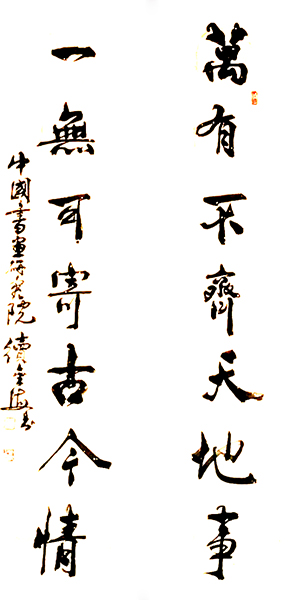 萬有不齊天地事
一無可寄古今情
中國書畫研究院